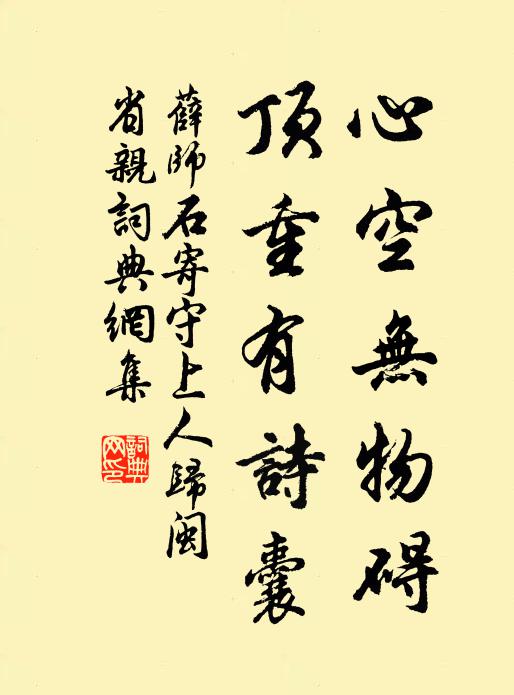 心空無物碍
頂重有詩囊
薛師石寄守上人歸閩
省親詞典網集
詞典网印